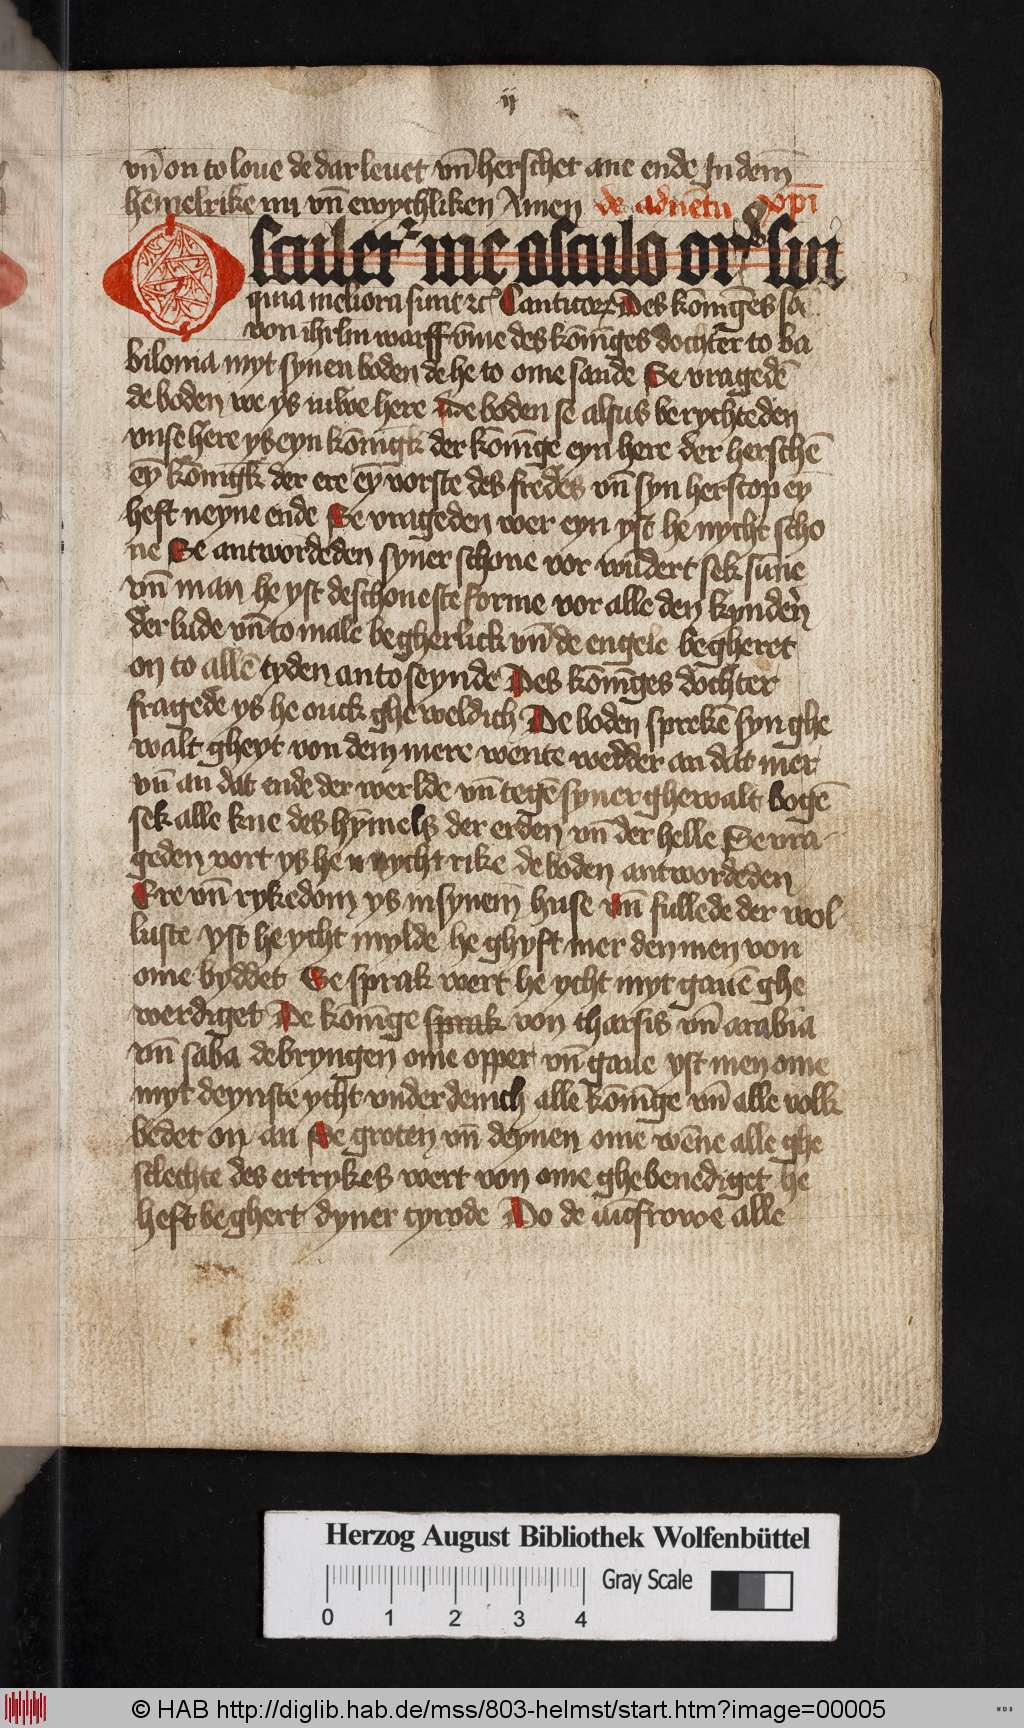 ij
vn̄ on to loue de dar leuet vn̄ herschet ane ende In dem̄
hēmelrike nu vn̄ ewychliken Amen de aduētu xp̄i
Osculet᷑ me osculo or̄s sui
quia meliora sunt ⁊c̄ Canticoꝝ Des kōniges
von ihrlm warff v̄me des kōniges dochter to ba
bilonia myt synen boden de he to ome sande Se vragedē
de boden we ys iuwe here De boden se alsus berychteden
vnse here ys eyn kōnigk der kōnige eyn here der herschē
eȳ kōnigk der ere eȳ vorste des fredes vn̄ syn herscop ey
heft neyne ende Se vrageden wer eyn yst he nycht scho
ne Se antwordeden syner schone vor wūdert sek sūne
vn̄ man he yst de schoneste forme vor alle den kynderen
der lude vn̄ to male begherlick vn̄ de engele begheret
on to allē tyden an to seynde Des kōniges dochter
fragede ys he ouck gheweldich De boden sprekē syn ghe
walt gheyt von dem mere wente wedder an dat mer
vn̄ an dat ende der werlde vn̄ tegē syner ghewalt bogē
sek alle kne des hȳmels der erden vn̄ der helle Se vra
geden vort ys he nycht rike de boden antwordeden
Ere vn̄ rykedom ys in synem̄ huse vn̄ fullede der wol
luste yst he ycht mylde he ghyft mer den men von
ome byddet Se sprak wert he ycht myt gauē ghe
werdiget De kōnige sprak von tharsis vn̄ arabia
vn̄ saba de bryngen ome opper vn̄ gaue yst men ome
myt deynste ycht vnderdenich alle kōnige vn̄ alle volk
bedet on an De groten vn̄ deynen ome wēne alle ghe
slechte des ertrykes wert von ome ghebenediget he
heft beghert dyner cyrode Do de iūcfrowe alle
Herzog August Bibliothek Wolfenbüttel
Gray Scale
0 1 2 3 4
© HAB http://diglib.hab.de/mss/803-helmst/start.htm?image=00005